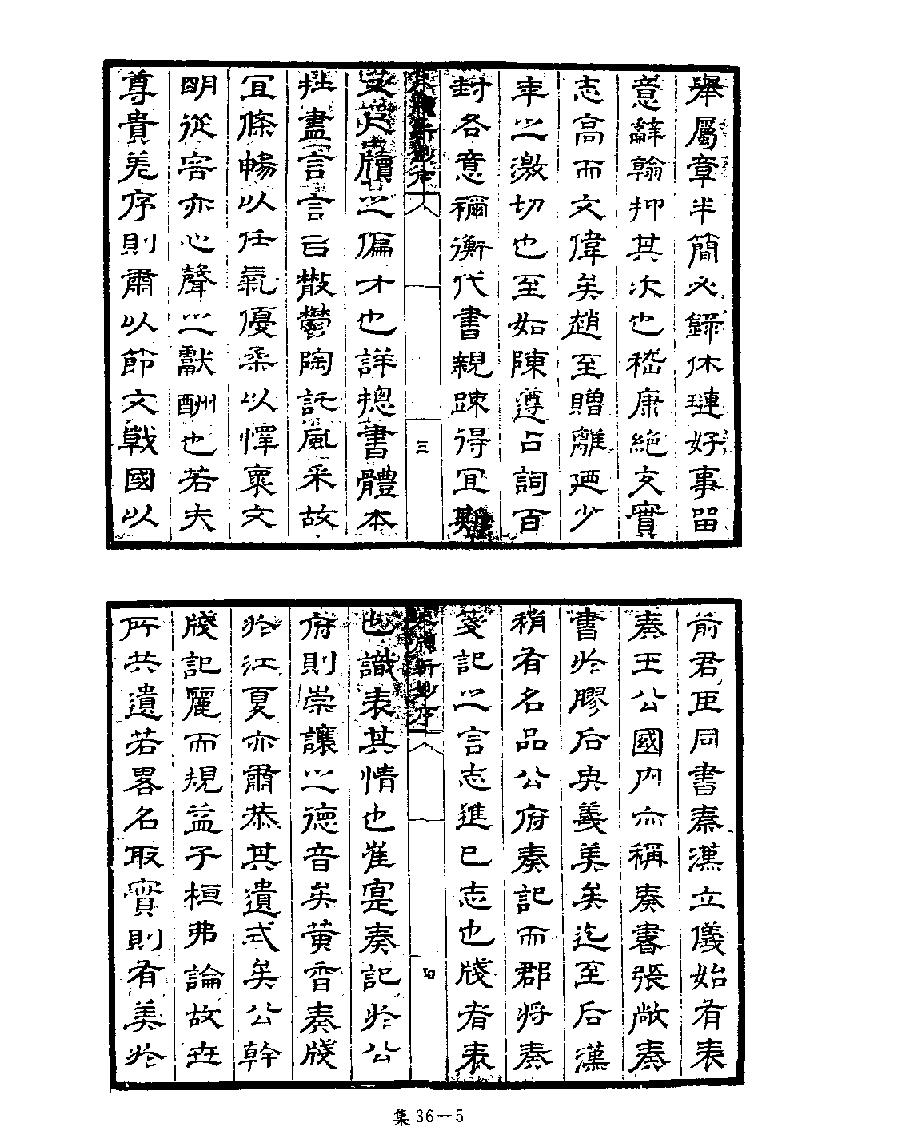 舉屬章半簡必錄休璉好事畱
意辭翰抑其次也嵇康絕交實
志高而文偉矣趙至贈離迺少
年之激切也至如陳遵占詞百
封各意禰衡代書親疎得宜斯
尺牘新鈔序
三
又尺牘之偏才也詳總書體本
在盡言言㠯散鬱陶託風采故
宜條暢以任氣優柔以懌裏文
明從容亦心聲之獻酬也若夫
尊貴差序則肅以節文戰國以
前君臣同書秦漢立儀始有表
奏王公國內亦稱奏書張敞奏
書於膠后其義美矣迄至后漢
稍有名品公府奏記而郡將奏
箋記之言志進己志也牋者表
尺牘新鈔序
四
也識表其情也崔寔奏記於公
府則崇讓之德音矣黃香奏牋
於江夏亦肅恭其遺式矣公幹
牋記麗而規益子桓弗論故世
所共遺若畧名取實則有美於
集 36—5